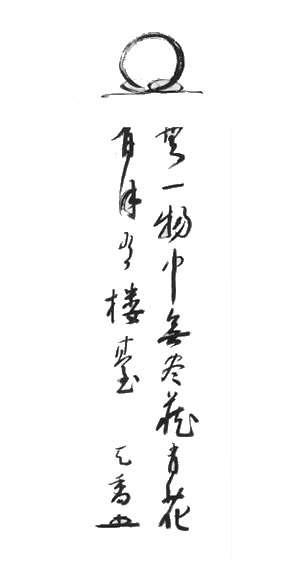 無一物中無尽蔵有花
有月有楼臺